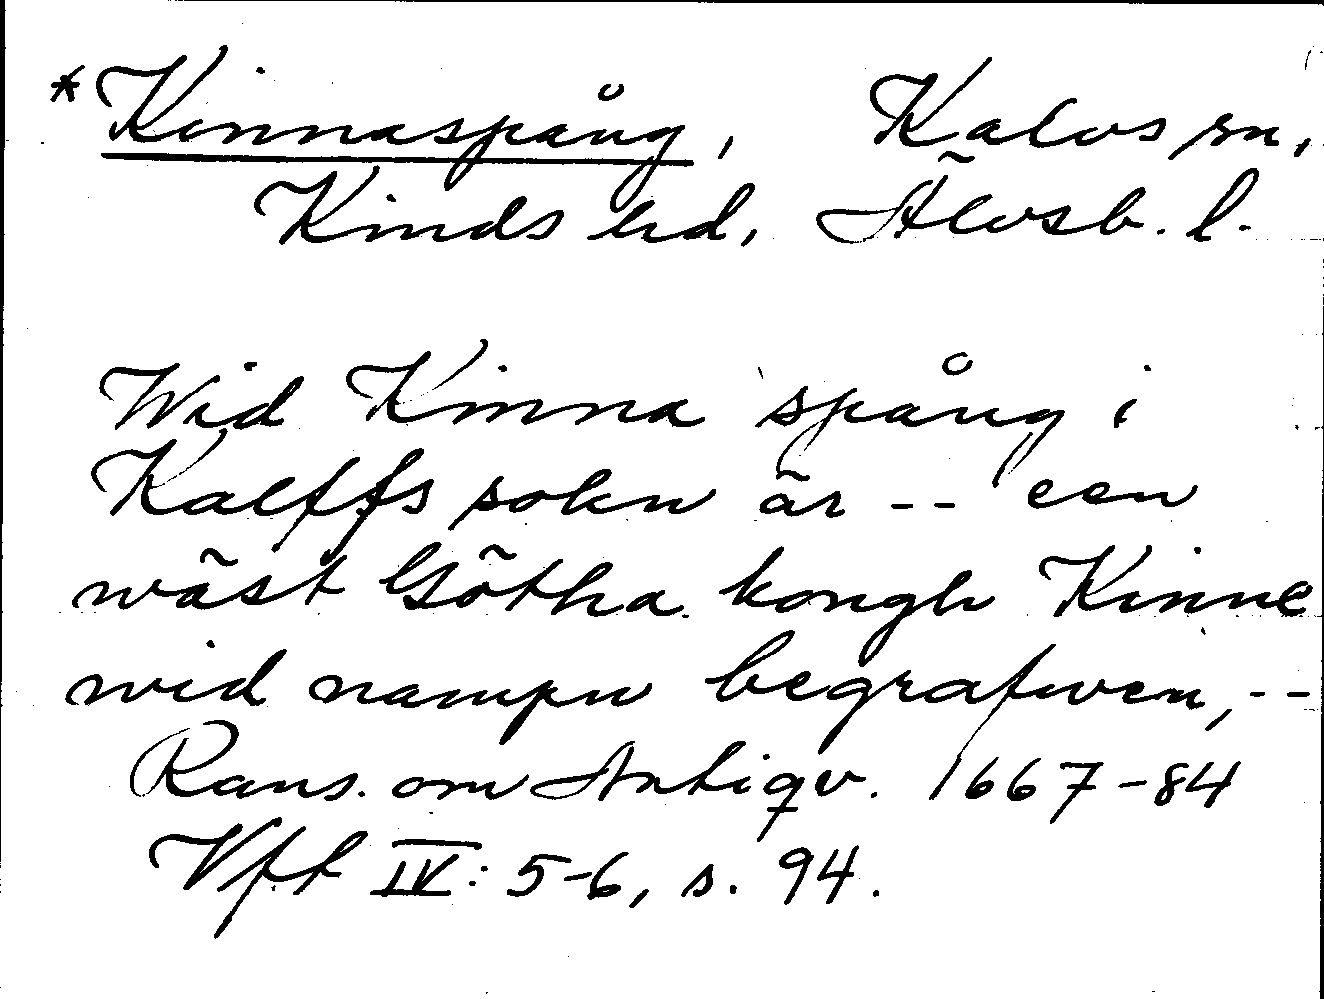 *Kinnaspång, Kalvs sn,
Kinds hd, Älvsb. l.
Wid Kinna spång i
Kalffs sokn är -- een
wäst Götha kongh Kinne
wid nampn begrafwen, --
Rans. om Antiqv. 1667-84
Vft IV: 5-6, s. 94.